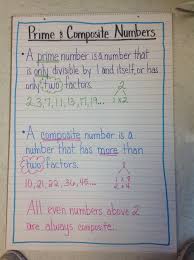 Prime & Composite Numbers
• A prime number is a number that
is only divisible by 1 and itself, or has
only two factors.
2
1 x 2
2, 3, 7, 11, 13, 17, 19...
• A composite number is a
number that has more than
two factors.
10, 21, 22, 36, 45...
2 x 4
All even numbers above 2
are always composite.